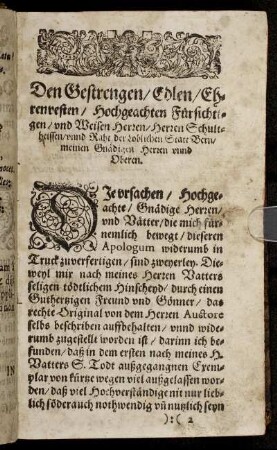 Den Gestrengen/ Edlen/ Eh-
renvesten/ Hochgeachten Fürsichti-
gen/ vnd Weisen Herren/ Herren Schult-
heissen/ vnnd Raht der Loblichen Statt Bern/
meinen Gnädigen Herren vnnd
Oberen.
DJe vrsachen/ Hochge-
achte/ Gnädige Herren/
vnd Vätter/ die mich für-
nemlich bewegt/ dieseren
Apologum widerumb in
Truck zuverfertigen/ sind zweyerley. Die-
weyl mir nach meines Herren Vatters
seligen tödtlichem Hinscheyd/ durch einen
Guthertzigen Freund vnd Gönner/ das
rechte Original von dem Herren Auctore
selbs beschriben auffbehalten/ vnnd wide-
rumb zugestellt worden ist/ darinn ich be-
funden/ daß in dem ersten nach meines H.
Vatters S. Todt außgegangnen Exem-
plar von kürtze wegen viel außgelassen wor-
den/ daß viel Hochverständige nit nur lieb-
lich/ sonder auch nothwendig vñ nutzlich seyn
):( 2